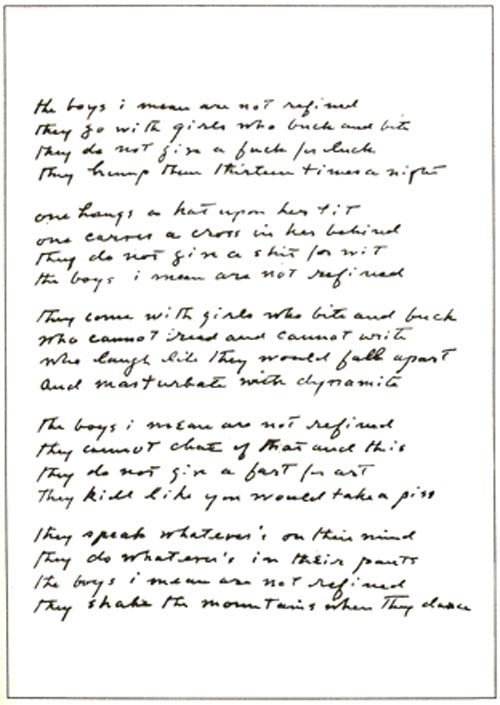 the boys i mean are not refined
they go with girls who buck and bite
they do not give a fuck for luck
they hump them thirteen times a night
one hangs a hat upon her tit
one carves a cross in her behind
they do not give a shit for wit
the boys i mean are not refined
they come with girls who bite and buck
who cannot read and cannot write
who laugh like they would fall apart
and masturbate with dynamite
the boys i mean are not refined
they cannot chat of that and this
they do not give a fart for art
they kill like you would take a piss
they speak whatever's on their mind
they do whatever's in their pants
the boys i mean are not refined
they shake the mountains when they dance